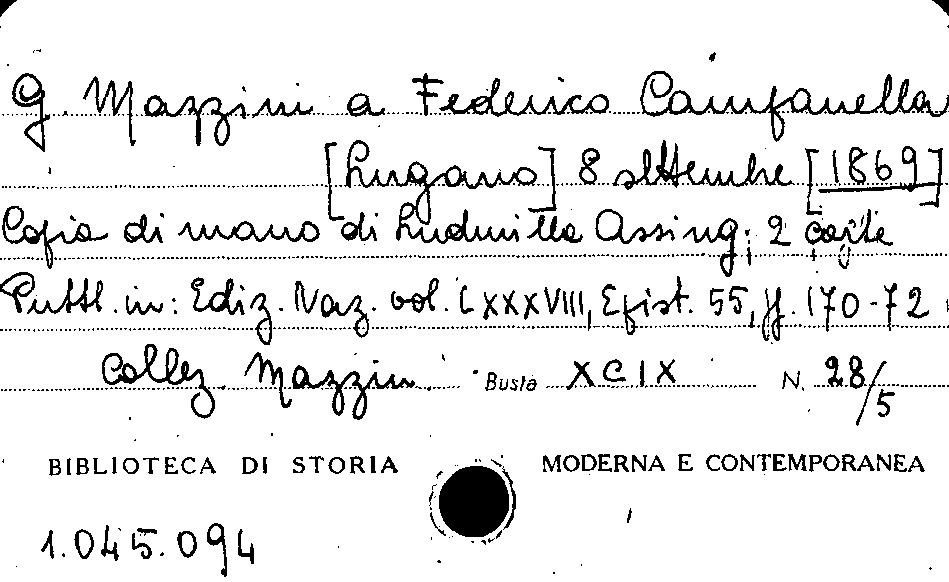 G. Mazzini a Federico Campanella
[Lugano] 8 settembre [1869]
Copia di mano di Ludmilla Assing; 2 carte
Pubbl. in: Ediz. Naz. vol. LXXXVIII, Epist. 55, pp. 170-72
Collez. Mazzini. Busta XCIX N. 28/5
BIBLIOTECA DI STORIA MODERNA E CONTEMPORANEA
1.045.094